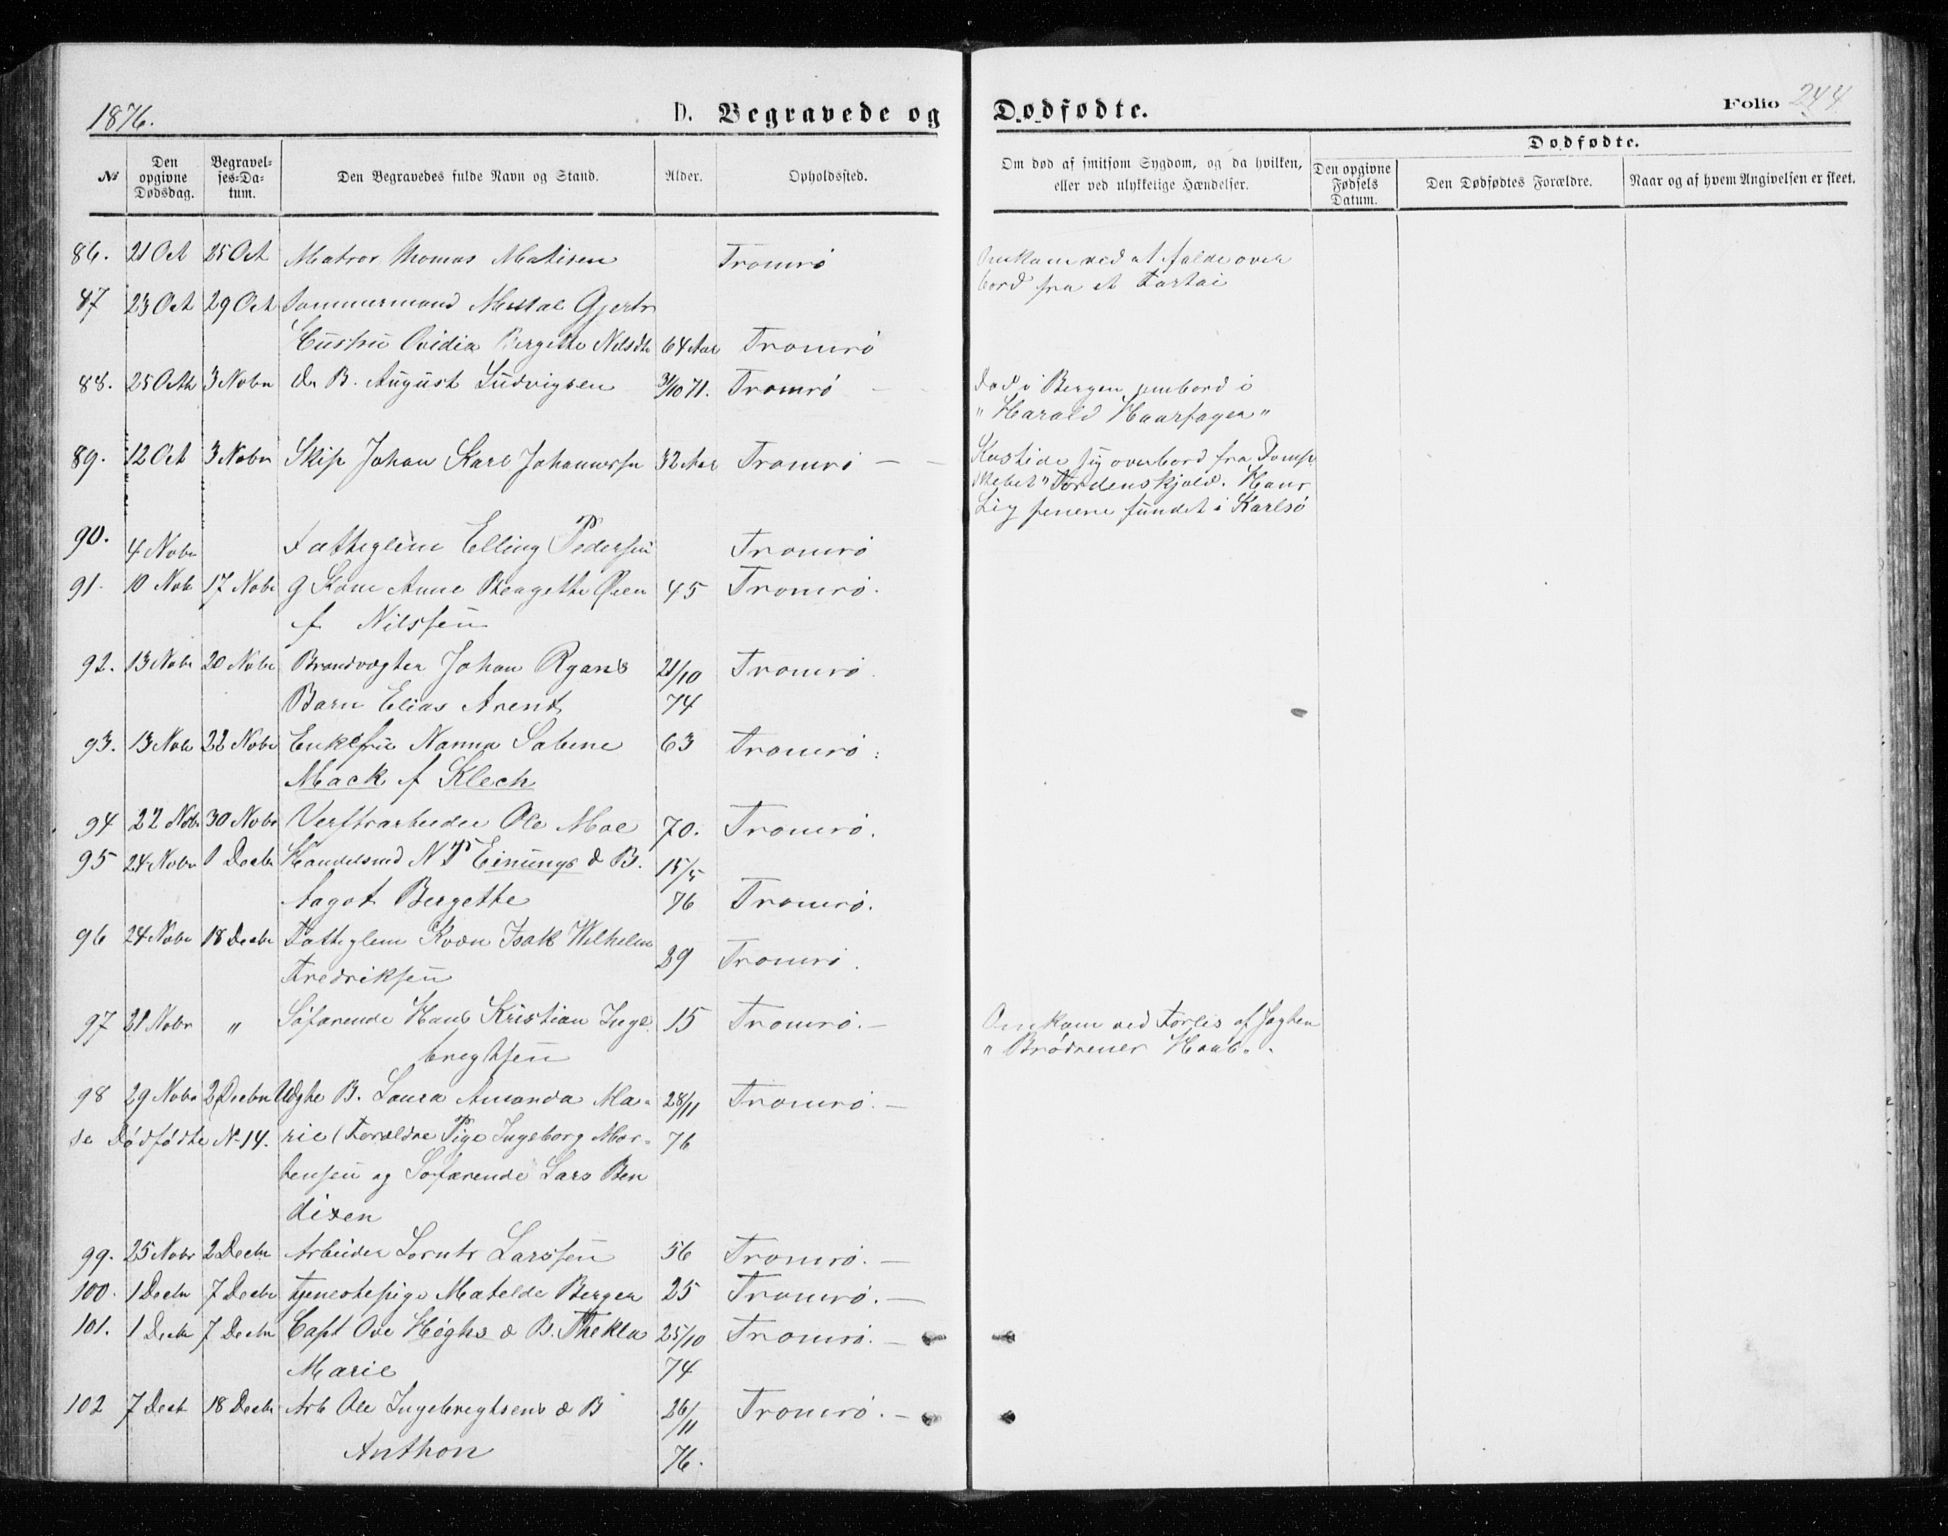 1876.
D. Begravede og Dødfødte.
Folio 244
No
Den opgivne Dødsdag.
Begravelses-Datum.
Den Begravedes fulde Navn og Stand.
Alder.
Opholdssted.
Om død af smitsom Sygdom, og da hvilken, eller ved ulykkelige Hændelser.
Dødfødte.
Den opgivne Fødsels Datum.
Den Dødfødtes Forældre.
Naar og af hvem Angivelsen er skeet.
86. 21 Oct 25 Oct Matros Thomas Matisen Tromsø Omkom ved at falde over
bord fra et Fartøi
87 23 Oct 29 Oct Tømmermand Gjertz
Hustru Ovidia Bergette Nilsdtr 64 Aar Tromsø
88. 25 Octb 3 Nobr B. August Ludvigsen 3/10 71. Tromsø — Død i Bergen ombord i
"Harald Haarfager"
89. 12 Oct 3 Nobr Skip Johan Karl Johannessen 32 Aar Tromsø — — Kastede sig overbord fra Damp
skibet "Tordenskjold. Hans
Lig senere fundet i Karlsø
90. 4 Nobr Fattiglem Elling Pedersen Tromsø
91. 10 Nob 17 Nobr g Kone Anne Bergette Øien 45 Tromsø.
f Nilssen
92. 13 Nobr 20 Nobr Brandvægter Johan Ryans 21/10 Tromsø.
Barn Elias Arent 74
93. 13 Nob 22 Nobr Enkefru Nanna Sabine 63 Tromsø.
Mack f Klech
94 22 Nobr 30 Nobr Verftsarbeider Ole Moe 70. Tromsø.
95 24 Nobr 1 Decbr Handelsmd N P Einungs d B. 15/5
Aagot Bergette 76 Tromsø.
96 24 Nobr 18 Decbr Fattiglem Kvæn Isak Wilhelm
Fredriksen 29 Tromsø.
97 21 Nobr " Søfarende Hans Kristian Inge 15 Tromsø. — Omkom ved Forlis af Jagten
brigtsen "Brødrenes Haab".
98 29 Nobr 2 Decbr Uægte B. Laura Amanda Ma- 28/11 Tromsø. —
se Dødfødte N. 14. rie (Forældre Pige Ingeborg Mor- 76
tensen og Søfarende Lars Ben
dixen
99. 25 Nobr 2 Decbr Arbeider Lorntz Larssen 56 Tromsø. —
100. 1 Decbr 7 Decbr Tjenestepige Matelde Berger 25 Tromsø. —
101. 1 Decbr 7 Decbr Capt Ove Høghs d B. Thekla 25/10 Tromsø. —
Marie 74
102 7 Decb 18 Decbr Arb Ole Ingebregtsens d B 26/11 Tromsø. —
Anthon 76.